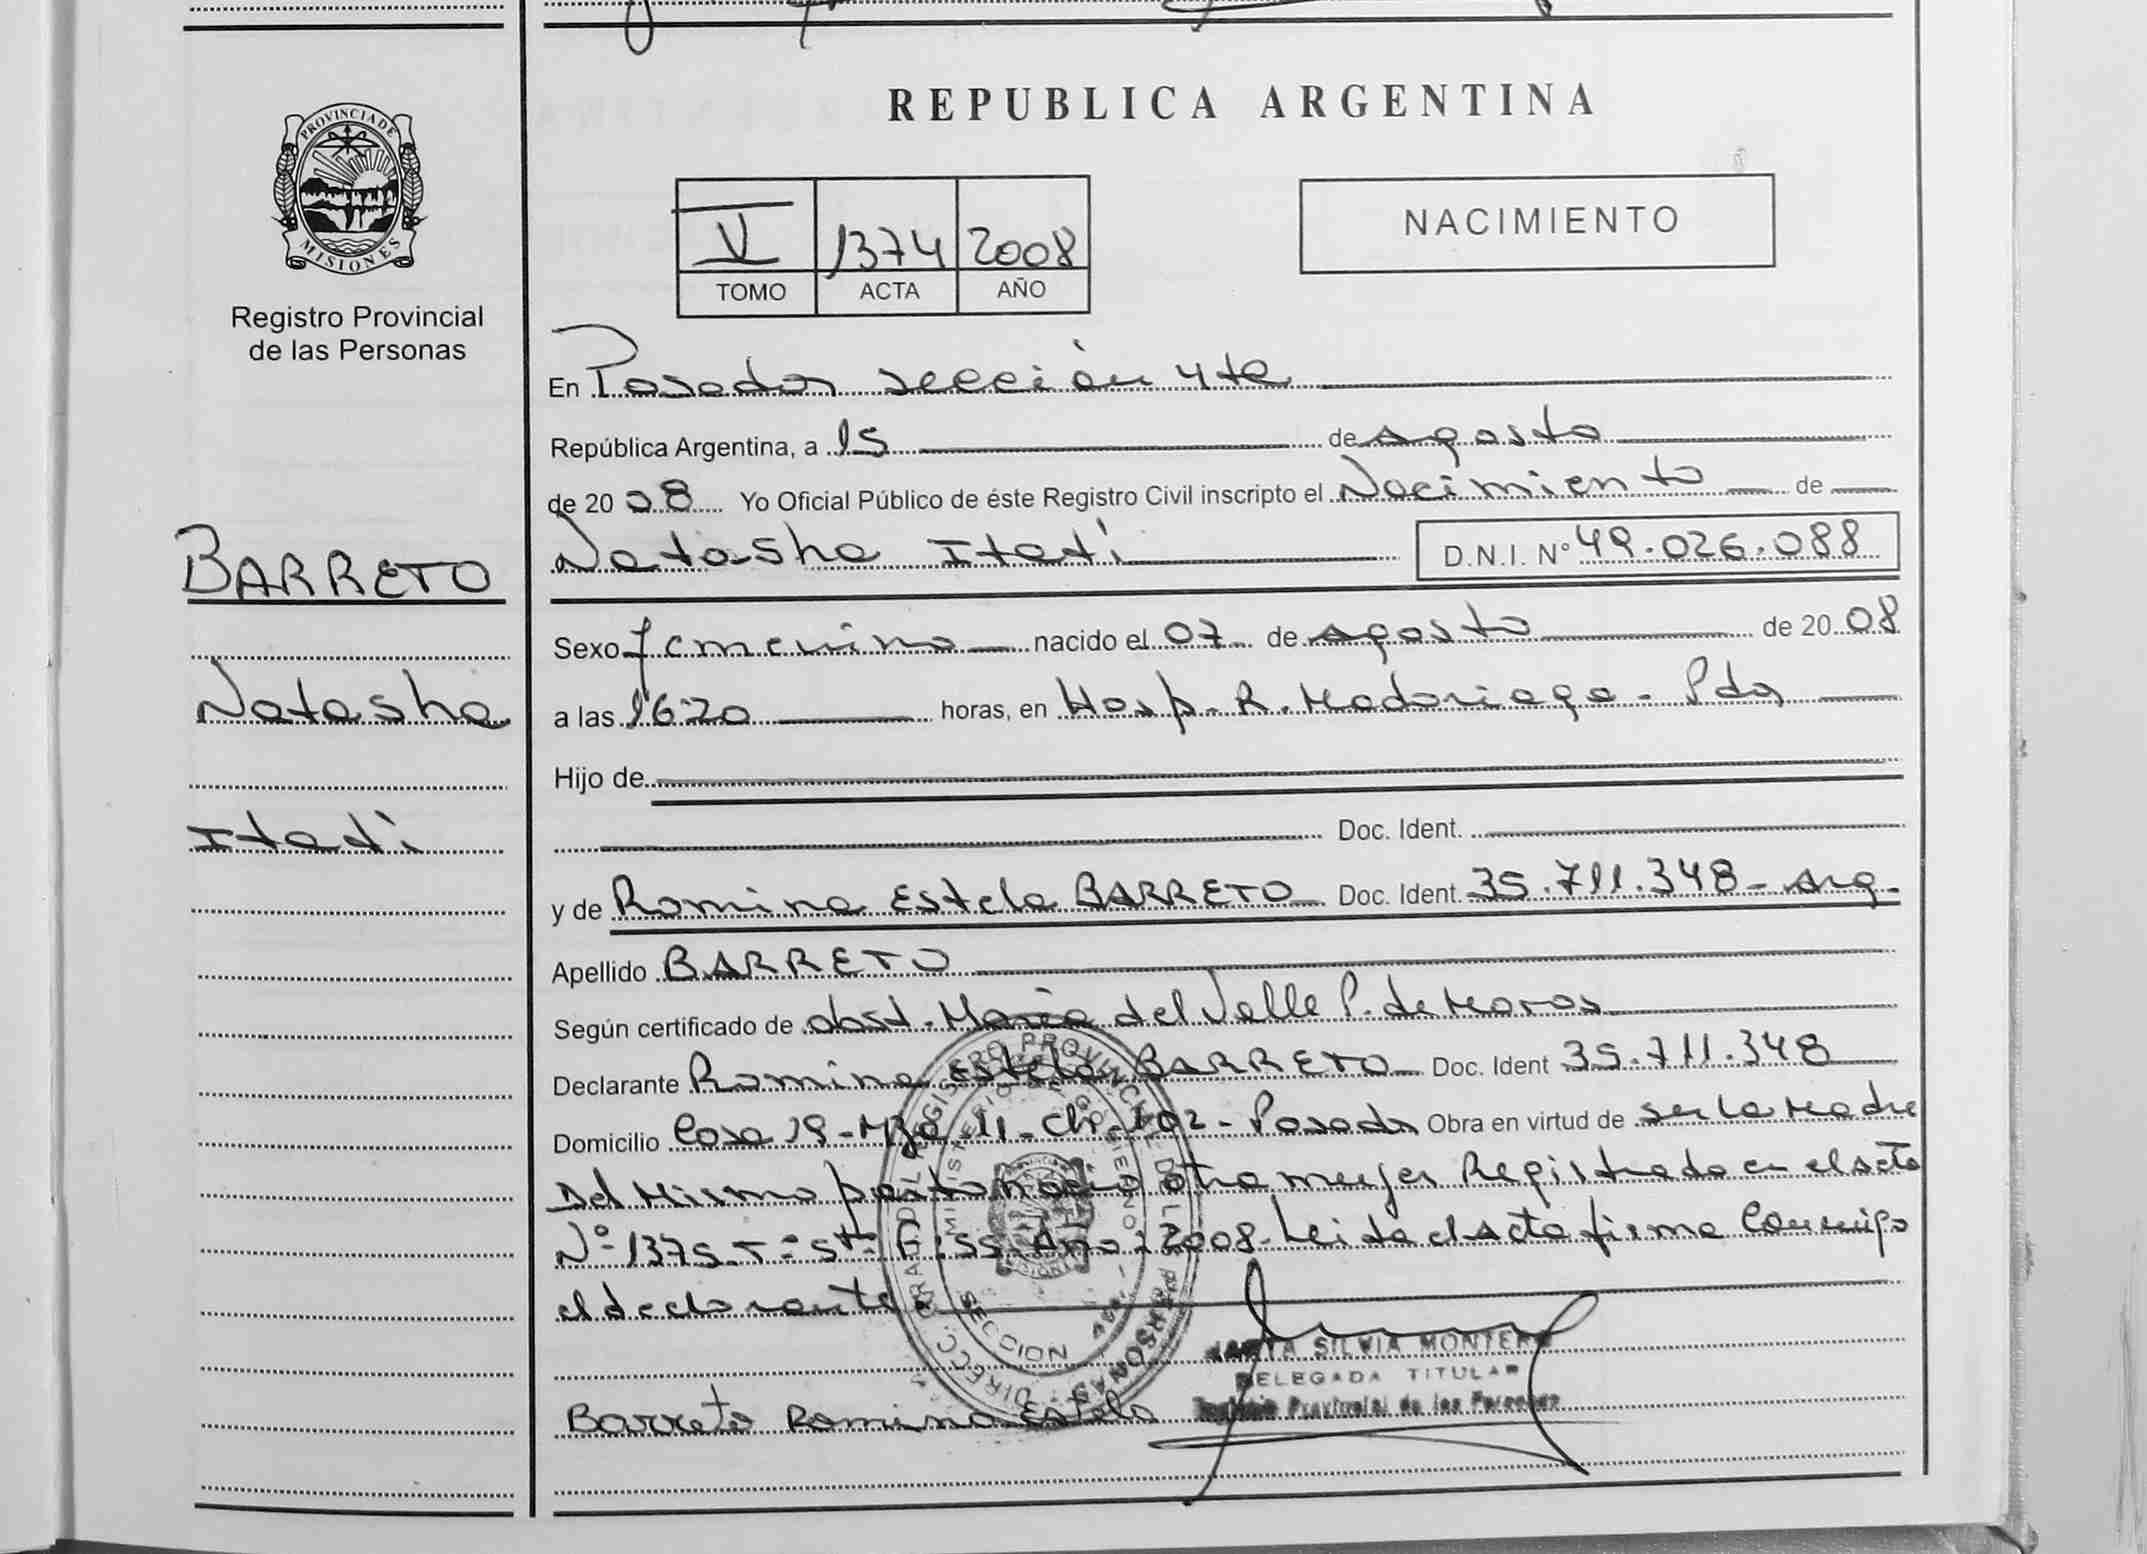 REPUBLICA ARGENTINA
PROVINCIA DE
MISIONES
Registro Provincial
de las Personas
V 1374 2008
TOMO ACTA AÑO
NACIMIENTO
En Posadas sección 4ta
República Argentina, a 15 de agosto
de 2008 Yo Oficial Público de éste Registro Civil inscripto el Nacimiento de
Natasha Itatí D.N.I. Nº 49.026.088
BARRETO
Natasha
Itatí
Sexo femenino nacido el 07 de agosto de 2008
a las 16:20 horas, en Hosp. R. Madariaga - Pdas
Hijo de
Doc. Ident.
y de Romina Estela BARRETO Doc. Ident. 35.711.348 - Arg.
Apellido BARRETO
Según certificado de obst. María del Valle P. de Moras
Declarante Romina Estela BARRETO Doc. Ident 35.711.348
Domicilio Casa 19 - Mza 11 - Ch. 102 - Posadas Obra en virtud de ser la Madre
Del Mismo parto nació otra mujer Registrada en el acta
Nº 1375 - Tº 5to Fº 55 Año: 2008 - Leida el acta firma conmigo
el declarante
SILVIA MONTERO
DELEGADA TITULAR
Registro Provincial de las Personas
Barreto Romina Estela